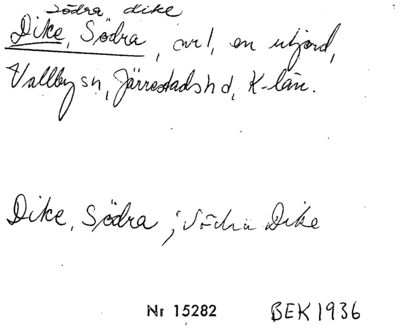 södra dike
Dike, Södra, avl, en utjord,
Vallby sn, Järrestads hd, K-län.
Dike, Södra ; södra Dike
Nr 15282 BEK 1936